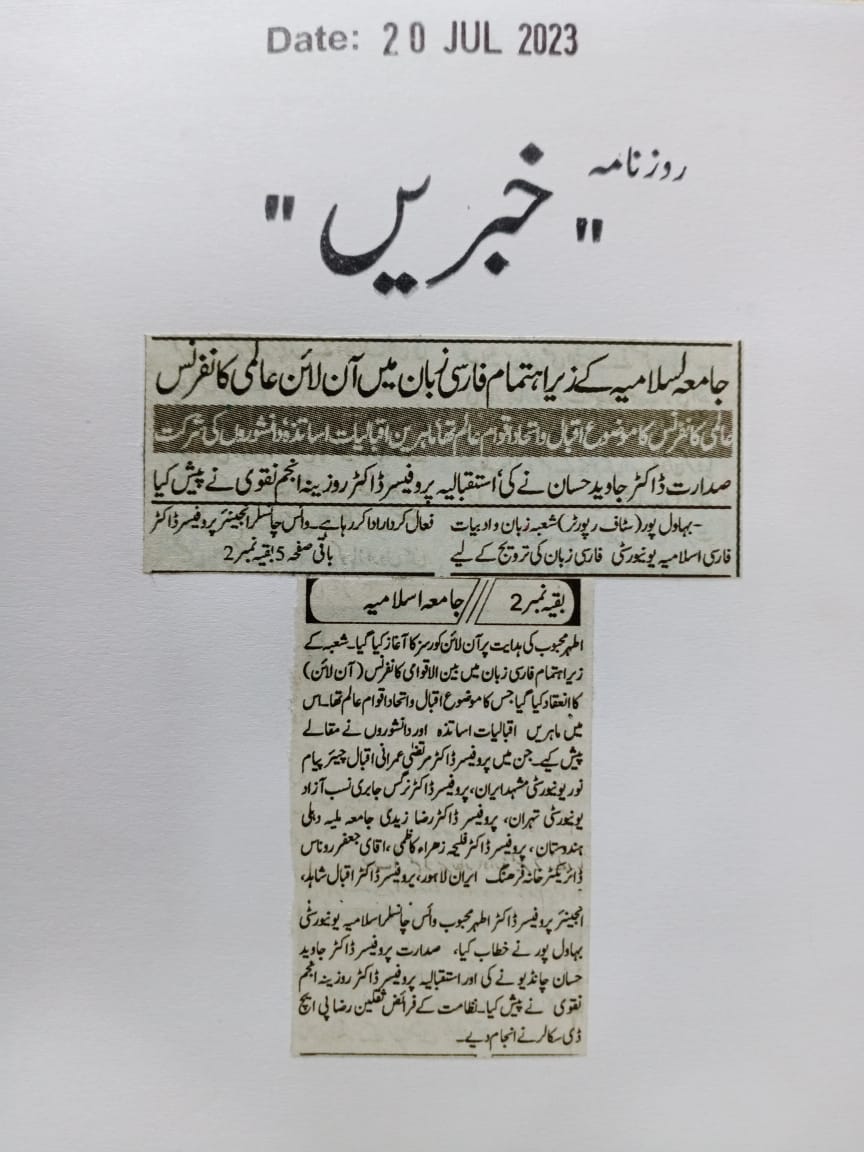 Date: 20 JUL 2023
روزنامہ
"خبریں"
جامعہ اسلامیہ کے زیراہتمام فارسی زبان میں آن لائن عالمی کانفرنس
عالمی کانفرنس کا موضوع اقبال و اتحاد اقوام عالم تھا ماہرین اقبالیات اساتذہ دانشوروں کی شرکت
صدارت ڈاکٹر جاوید حسان نے کی، استقبالیہ پروفیسر ڈاکٹر روزینہ انجم نقوی نے پیش کیا
-بہاول پور (سٹاف رپورٹر) شعبہ زبان و ادبیات
فارسی اسلامیہ یونیورسٹی فارسی زبان کی ترویج کے لیے
فعال کردار ادا کر رہا ہے۔ وائس چانسلر انجینئر پروفیسر ڈاکٹر
باقی صفحہ 5 بقیہ نمبر 2
بقیہ نمبر 2 // جامعہ اسلامیہ
اطہر محبوب کی ہدایت پر آن لائن کورسز کا آغاز کیا گیا۔ شعبہ کے
زیراہتمام فارسی زبان میں بین الاقوامی کانفرنس (آن لائن)
کا انعقاد کیا گیا جس کا موضوع اقبال و اتحاد اقوام عالم تھا۔ اس
میں ماہریں اقبالیات اساتذہ اور دانشوروں نے مقالے
پیش کیے۔ جن میں پروفیسر ڈاکٹر مرتضی عمرانی اقبال چیئر پیام
نور یونیورسٹی مشہد ایران، پروفیسر ڈاکٹر نرگس جابری نسب آزاد
یونیورسٹی تہران، پروفیسر ڈاکٹر رضا زیدی جامعہ ملیہ دہلی
ہندوستان، پروفیسر ڈاکٹر فلیحہ زہراء کاظمی، اقای جعفر روناس
ڈائریکٹر خانہ فرہنگ ایران لاہور، پروفیسر ڈاکٹر اقبال شاہد،
انجینئر پروفیسر ڈاکٹر اطہر محبوب وائس چانسلر اسلامیہ یونیورسٹی
بہاول پور نے خطاب کیا، صدارت پروفیسر ڈاکٹر جاوید
حسان چانڈیو نے کی اور استقبالیہ پروفیسر ڈاکٹر روزینہ انجم
نقوی نے پیش کیا۔ نظامت کے فرائض ثقلین رضا پی ایچ
ڈی سکالر نے انجام دیے۔